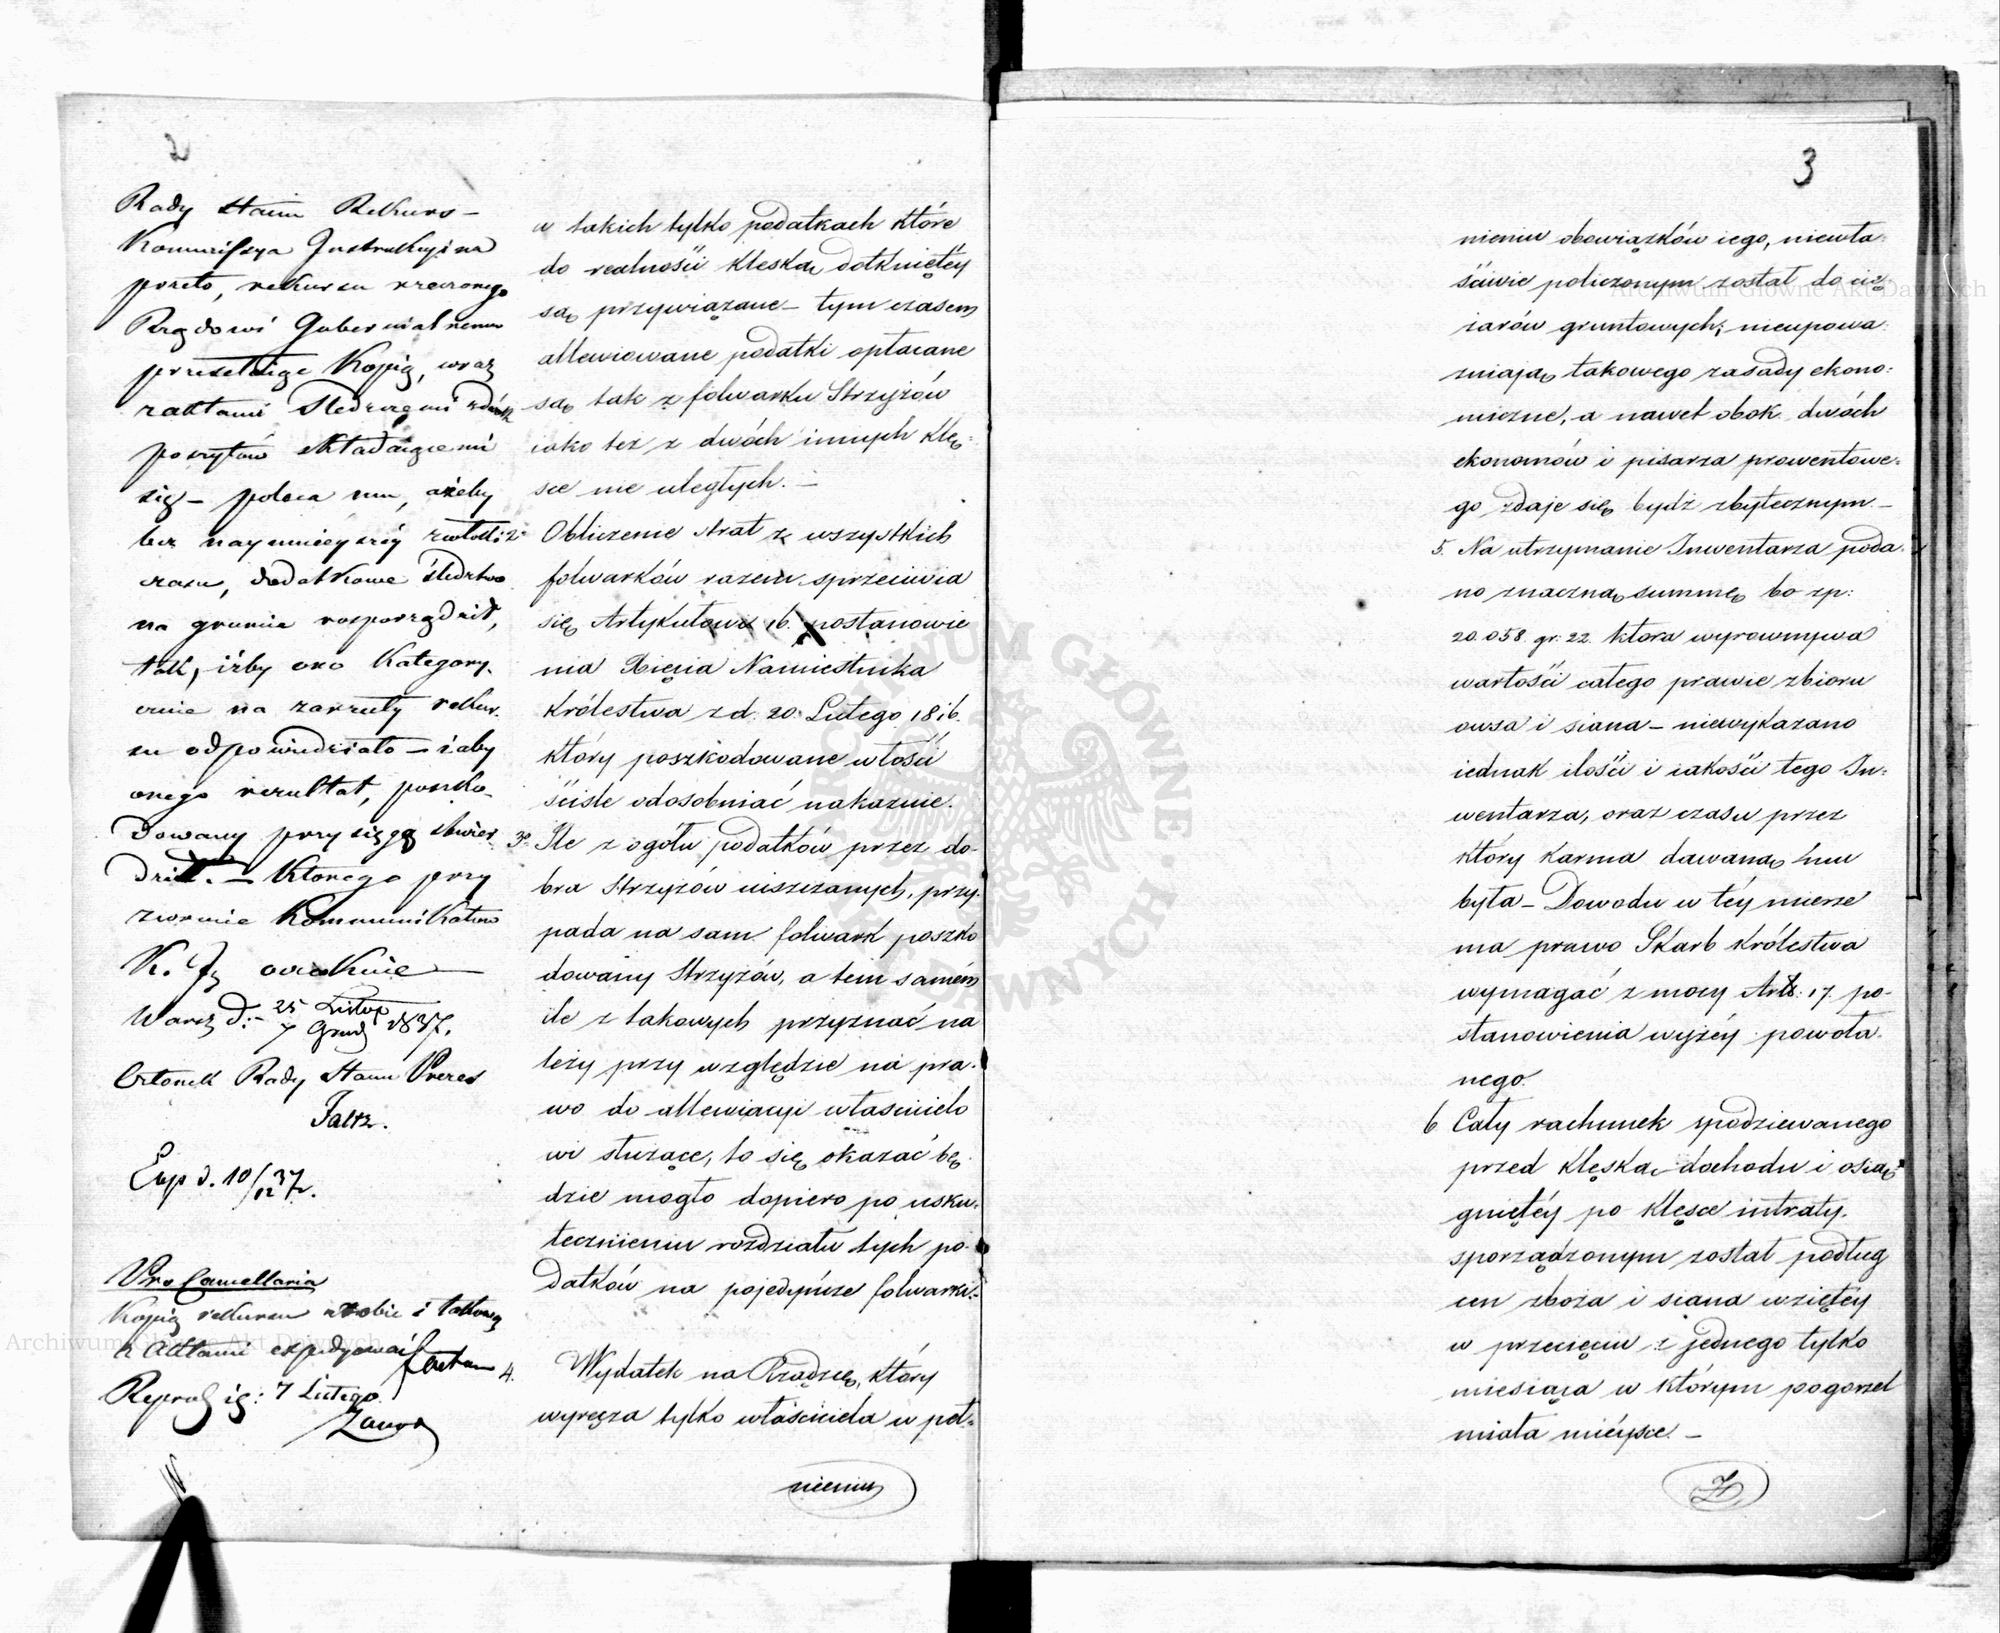 2
Rady Stanu Rekurs –
Kommissya Instrukcyina
przeto, rekursu rzeczonego
Rządowi Gubernialnemu
przesełaiąc Kopią, wraz
z aktami Sledczemi z dwóch
poszytów składaiącemi
się – poleca mu, ażeby
bez naymnieyszéj zwłoki
czasu, dodatkowe śledztwo
na gruncie rosporządził,
tak, iżby ono Kategory-
cznie na zarzuty rekur-
su odpowiedziało – i aby
onego rezultat, poszko-
dowany przysięgą stwier-
dził. – Którego przy
zwrocie Kommunikatów
K. J. oczekuie –
Warsz d: 25 Listop / 7 Grud 1837.
Członek Rady Stanu Prezes
Faltz.
Exp d. 10/12 37 r.
Pro Cancellaria
Kopią rekursu zrobić i takową
z Aktami expedyować
Reprod ig: 7 Lutego
w takich tylko podatkach które
do realności klęską dotkniętéy
są przywiązane – tym czasem
allewiowane podatki opłacane
są tak z folwarku Strzyżów
iako też z dwóch innych klę=
sce nie uległych. –
2° Obliczenie strat z wszystkich
folwarków razem sprzeciwia
się Artykułowi 16. postanowie
nia Xięcia Namiestnika
Królestwa z d. 20. Lutego 1816.
który poszkodowane włości
ściśle odosobniać nakazuie.
3° Ile z ogółu podatków przez do-
bra Strzyżów uiszczanych, przy-
pada na sam folwark poszko
dowany Strzyżów, a tem samém
ile z takowych przyznać na
leży przy względzie na pra-
wo do allewiacyi właścicielo
wi służące, to się okazać bę-
dzie mogło dopiero po usku-
tecznieniu rozdziału tych po-
datków na pojedyńcze folwarki.
4. Wydatek na Rządzcę, który
wyręcza tylko właściciela w peł=
nieniu
3
nieniu obowiązków iego, niewła=
ściwie policzonym został do cię
żarów gruntowych; nieupowa=
żniają takowego zasady ekono=
miczne, a nawet obok dwóch
ekonomów i pisarza prowentowe=
go zdaje się bydź zbytecznym. –
5. Na utrzymanie Inwentarza poda-
no znaczną summę bo zp:
20.058 gr: 22. która wyrównywa
wartości całego prawie zbioru
owsa i siana – niewykazano
iednak ilości i iakości tego In=
wentarza, oraz czasu przez
który karma dawaną mu
była – Dowodu w téy mierze
ma prawo Skarb Królestwa
wymagać z mocy Artt: 17. po-
stanowienia wyżéy powoła-
nego.
6 Cały rachunek spodziewanego
przed klęską dochodu i osią=
gniętéy po klęsce intraty.
sporządzonym został podług
cen zboża i siana wziętéy
w przecięciu z jednego tylko
miesiąca w którym pogorzel
miała mieysce. –
Archiwum Główne Akt Dawnych
Archiwum Główne Akt Dawnych
ARCHIWUM GŁÓWNE AKT DAWNYCH